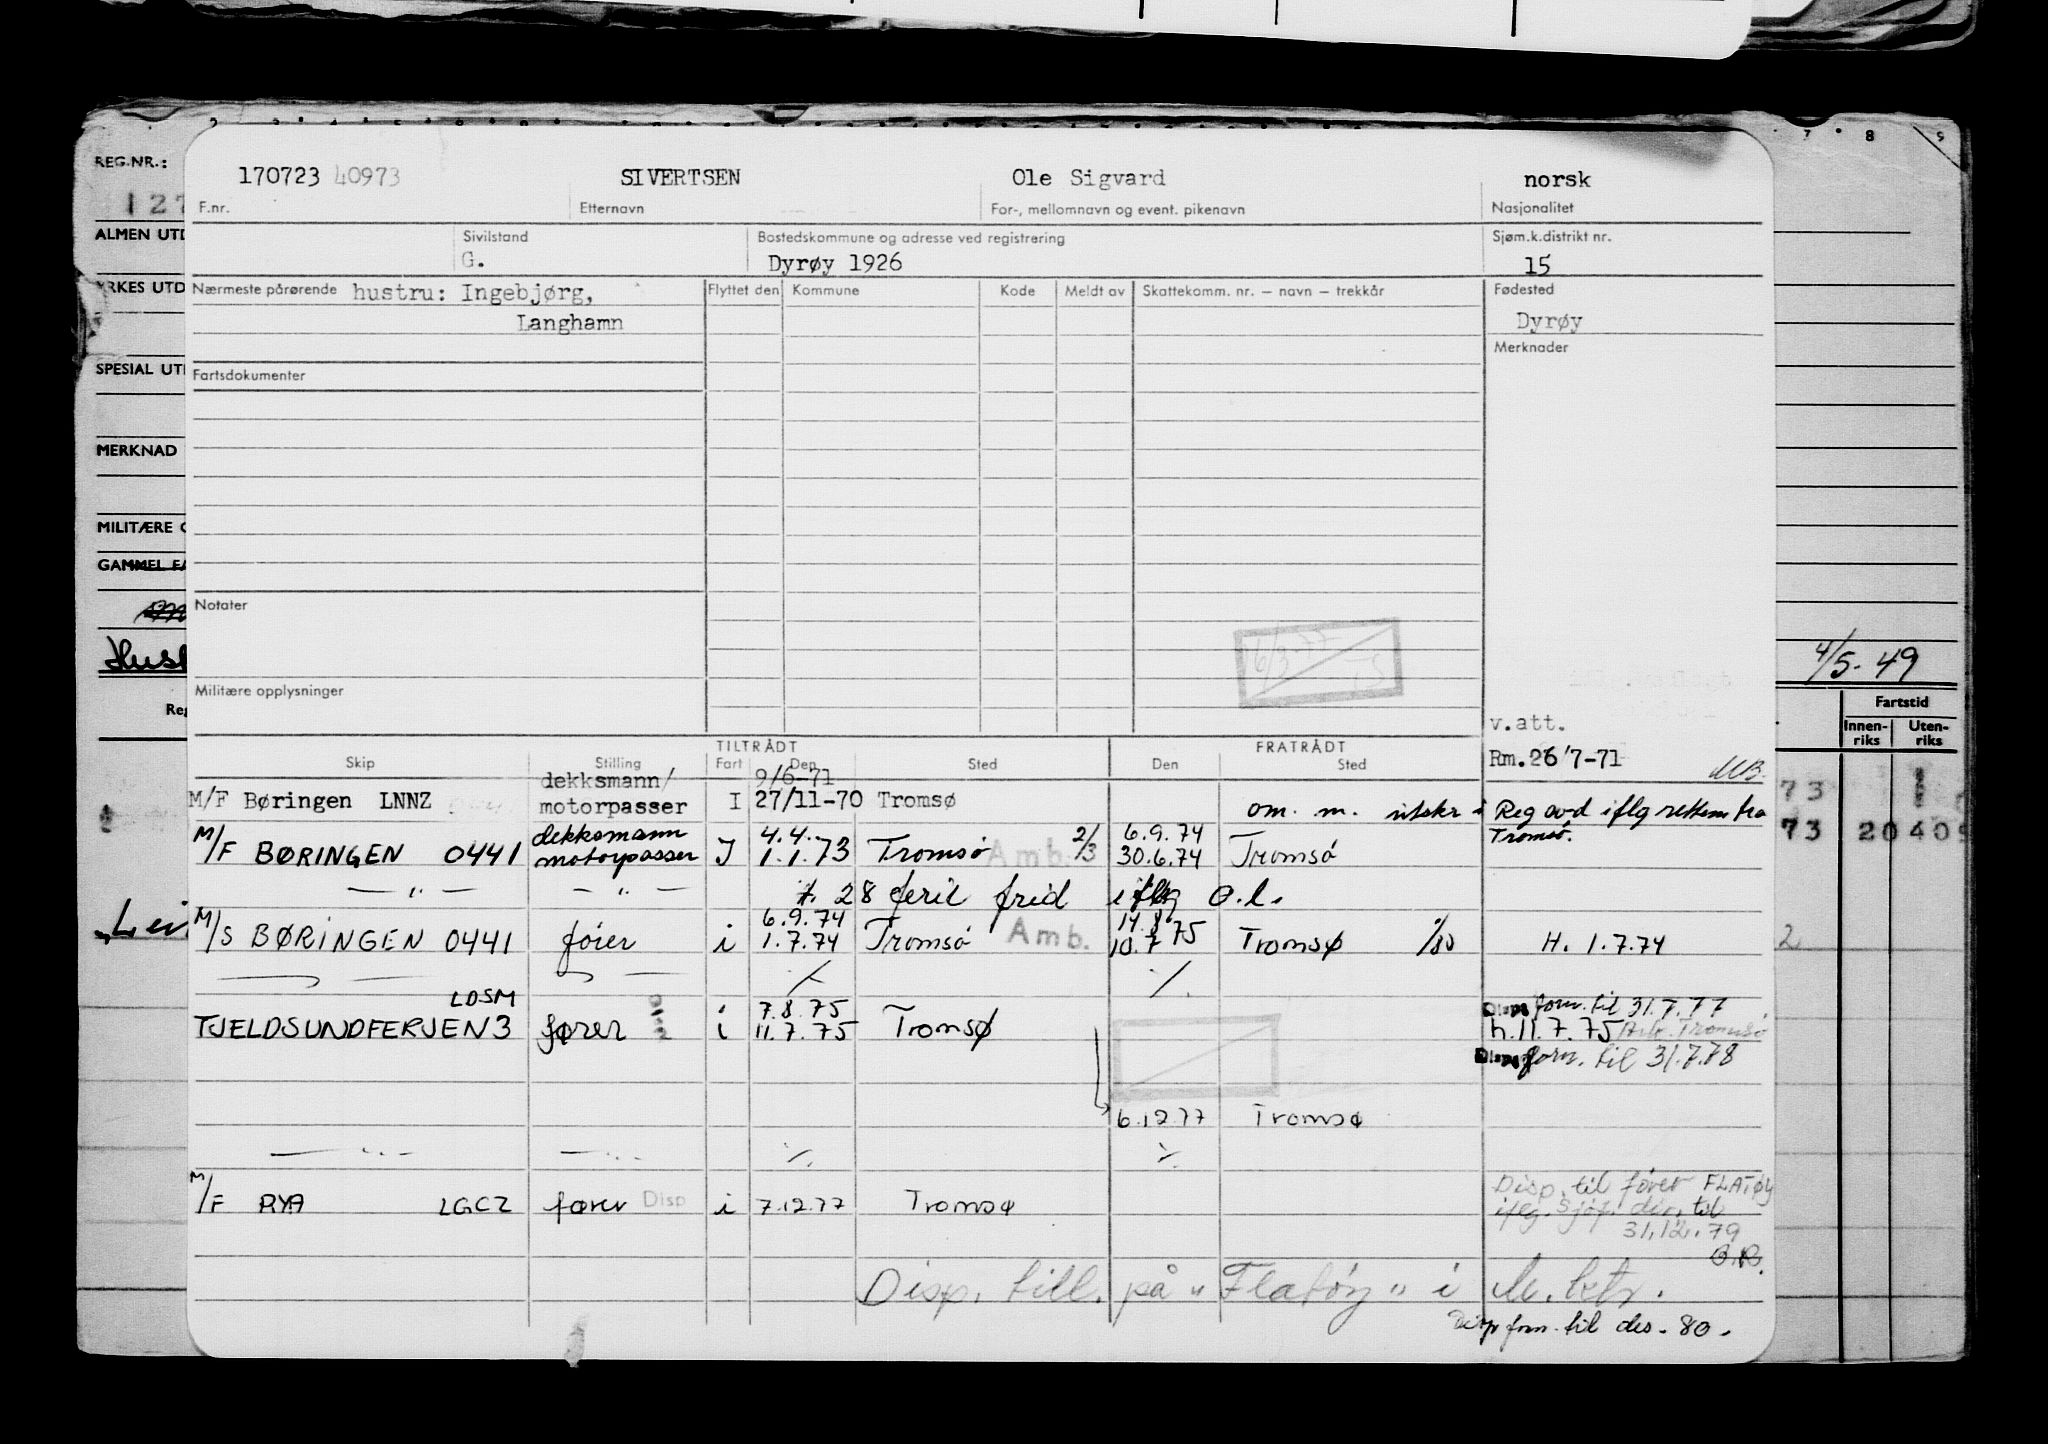 REG.NR.:
170723 40973 SIVERTSEN Ole Sigvard norsk
F.nr. Etternavn For-, mellomnavn og event. pikenavn Nasjonalitet
127
ALMEN UTD
Sivilstand Bostedskommune og adresse ved registrering Sjøm.k.distrikt nr.
G. Dyrøy 1926 15
YRKES UTD
Nærmeste pårørende hustru: Ingebjørg, Flyttet den Kommune Kode Meldt av Skattekomm. nr. — navn — trekkår Fødested
Langhamn Dyrøy
Merknader
SPESIAL UT
Fartsdokumenter
MERKNAD
MILITÆRE
GAMMEL
Notater
4/5-49
16/3-77
75
Militære opplysninger
Reg
Fartstid
Innen-riks Uten-riks
v.att.
TILTRÅDT FRATRÅDT
Skip Stilling Fart Den Sted Den Sted Rm.26'7-71 MB.
dekksmann/ 9/6-71
M/F Børingen LNNZ motorpasser I 27/11-70 Tromsø om. m. utskr i Reg avd iflg rettem fra
Tromsø.
dekksmann 4.4. 2/3 6.9.74
M/F BØRINGEN 0441 motorpasser I 1.1.73 Tromsø Amb. 30.6.74 Tromsø
73 1
73 20 405
— " — — " — /. 28 ferie frid iflg o.l.
6.9.74 14.8
M/S BØRINGEN 0441 fører i 1.7.74 Tromsø Amb. 10.7 75 Tromsø 1/80 H. 1.7.74
2
/. /.
LDSM 7.8.75 Disp forn. til 31.7.77
TJELDSUNDFERJEN 3 fører Disp i 11.7.75 Tromsø h.11.7.75 Arb. Tromsø
Disp forn. til 31.7.78
6.12.77 Tromsø
— " — — " — /. /.
M/F RYA LGCZ fører Disp i 7.12.77 Tromsø
Disp. til fører FLATØY
iflg. Sjøf. dir. til
31.12.79
G.R.
Disp. till. på "Flatøy" i M. ktr.
Disp forn. til des. 80.